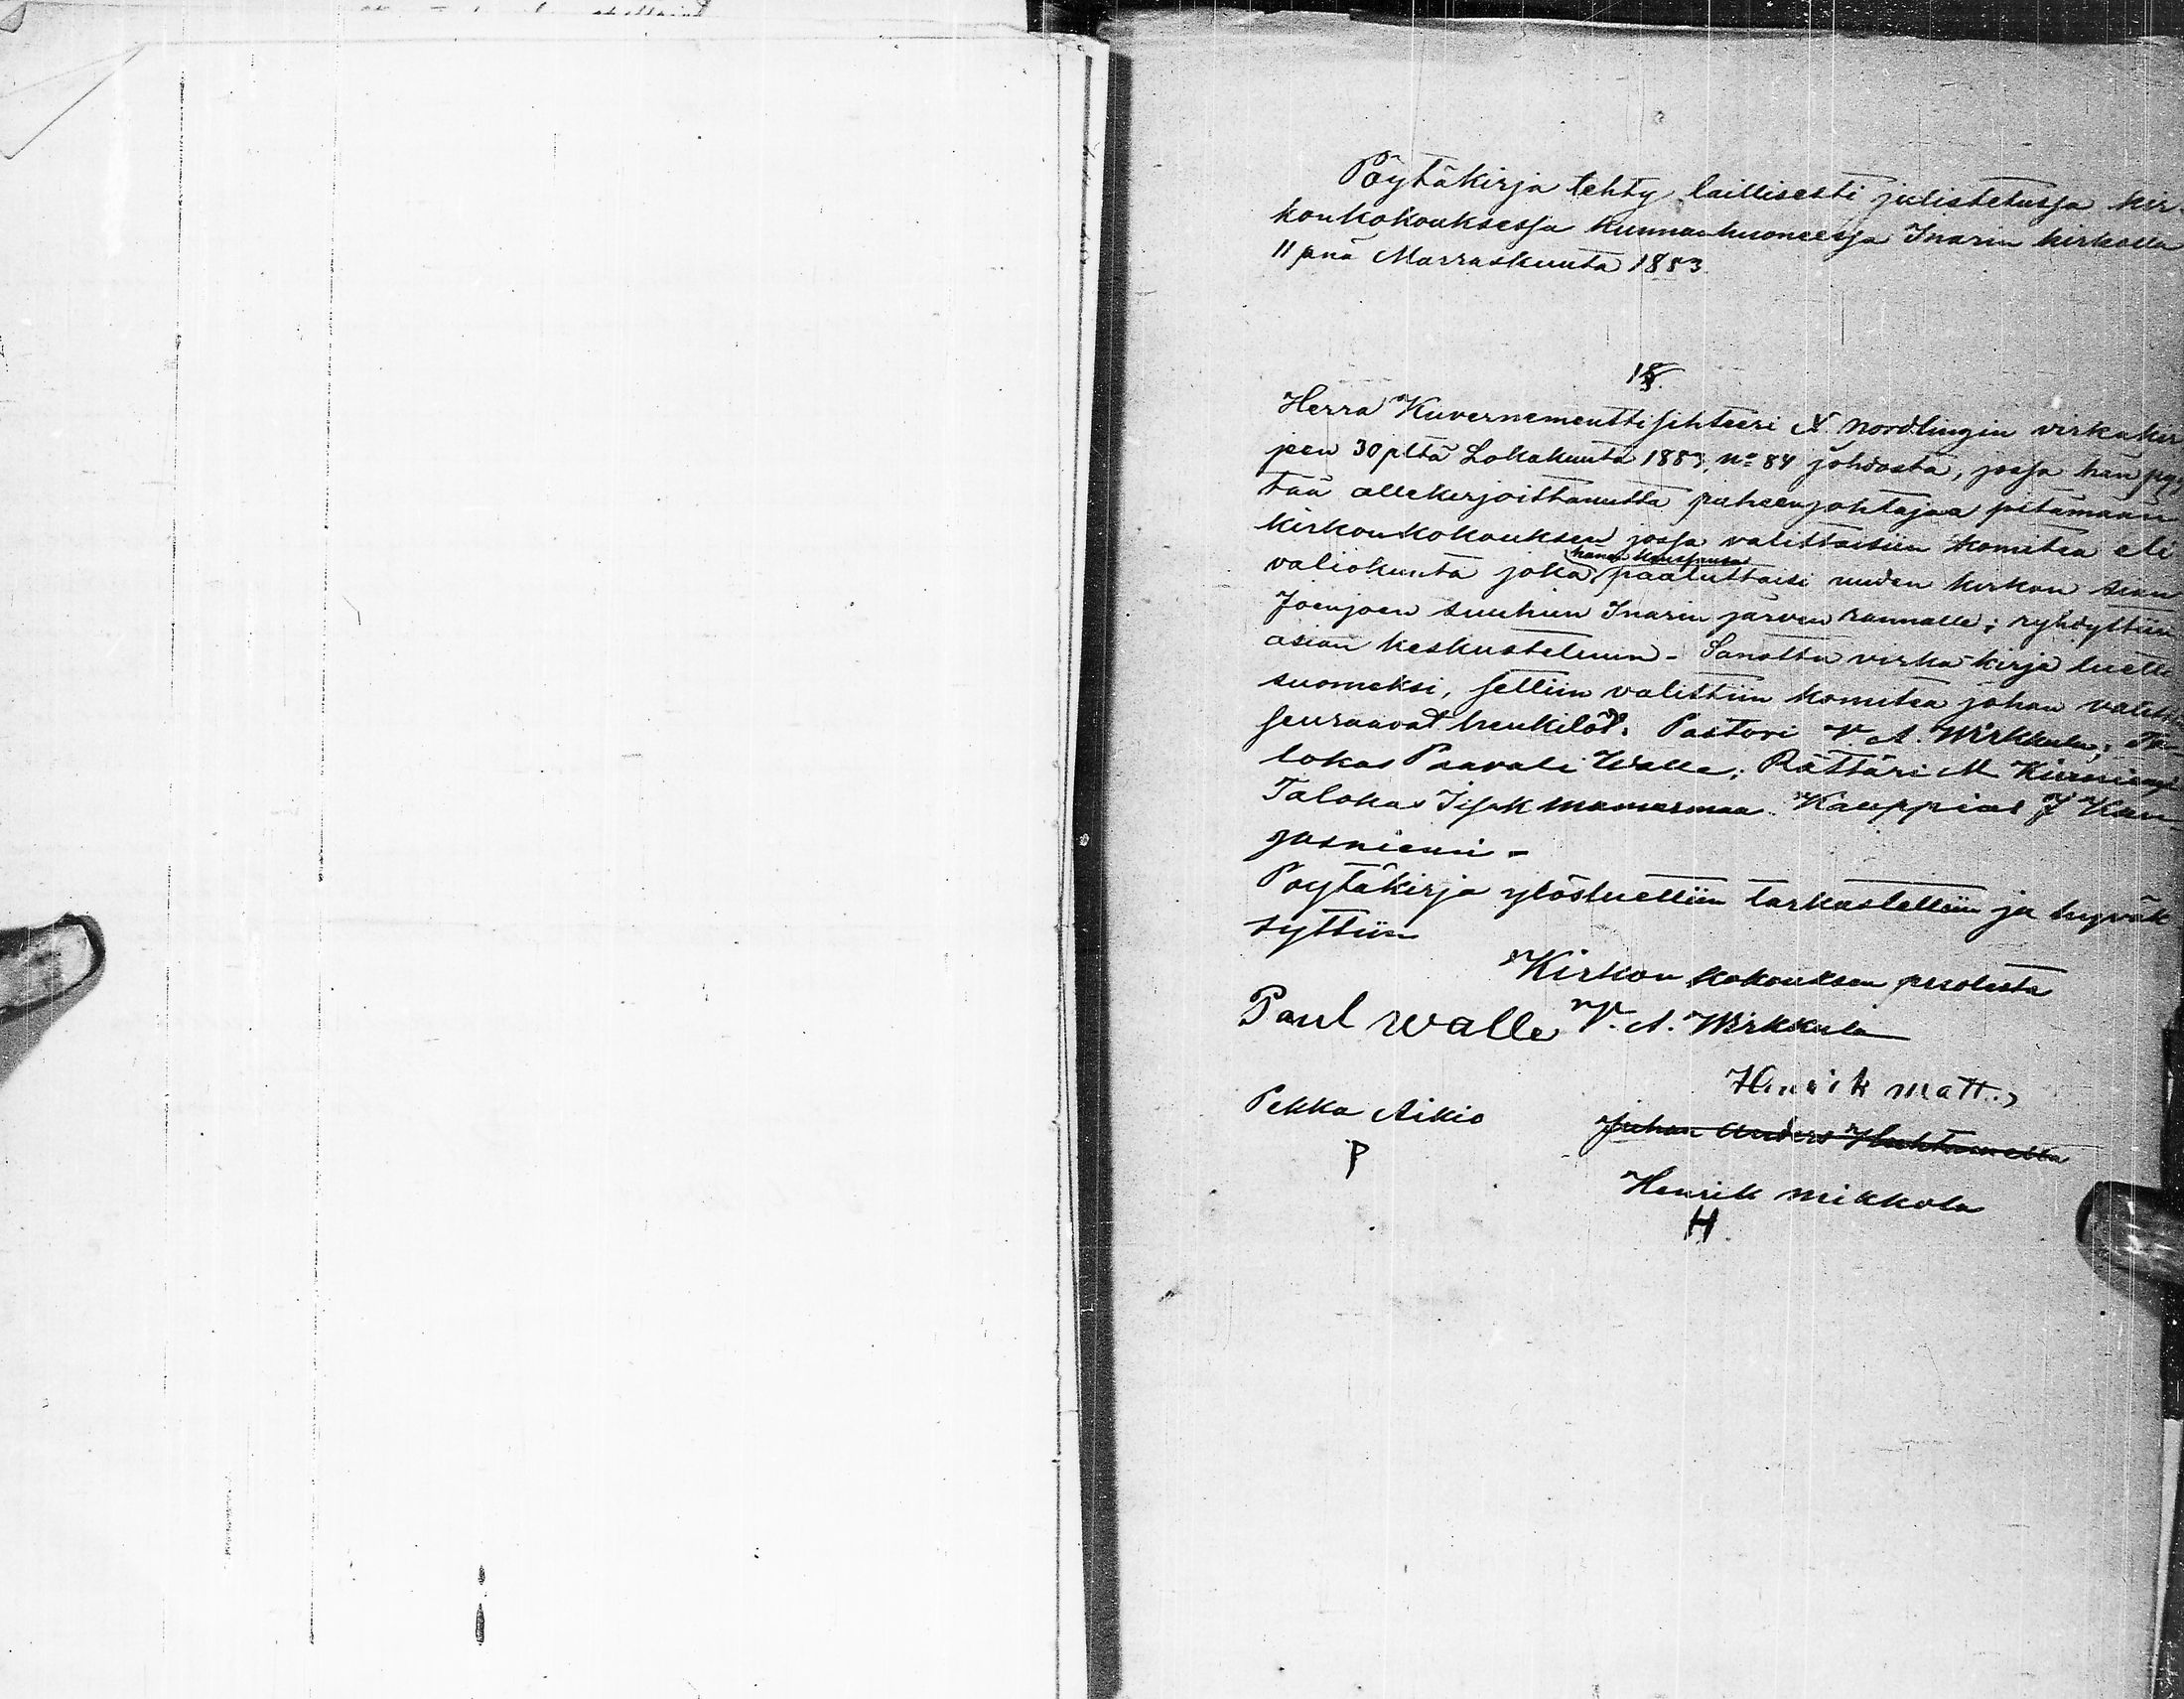 Pöytäkirja tehty laillisesti julistetussa kir-
konkokouksessa kunnanhuoneessa Inarin kirkolla
11 pnä Marraskuuta 1883.
1 §.
Herra Kuvernementtisihteeri A. Nordlingin virkakir
jeen 30 pltä Lokakuuta 1883, No 84 johdosta, jossa hän pyy
tää allekirjoittanutta puheenjohtajaa pitämään
kirkonkokouksen jossa valittaisiin komitea eli
hänen kanssansa
valiokunta joka paaluttaisi uuden kirkon sian
Joenjoen suuhun Inarin järven rannalle; ryhdyttiin
asian keskusteluun. Sanottu virkakirja luettu
suomeksi, sitten valittiin komitea johon valittiin
seuraavat henkilöt: Pastori V. A. Wirkkula; Ta-
lokas Paavali Walle; Rättäri M Kiviniemi
Talokas Isak Mannermaa. Kauppias J Kan
gasniemi -
Pöytäkirja ylösluettiin tarkastettiin ja hyväk
syttiin
Kirkon kokouksen puolesta
Paul Walle V. A. Wirkkula
Henrik Matt..
Pekka Aikio
Juhan Anders
P
Henrik Mikkola
H.